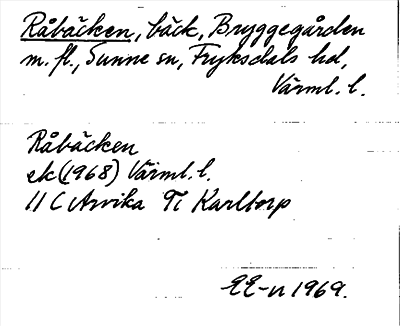 Råbäcken, bäck, Bryggegården
m. fl., Sunne sn, Fryksdals hd,
Värml. l.
Råbäcken
ek (1968) Värml. l.
11 C Arvika Karltorp
EE-n 1969.